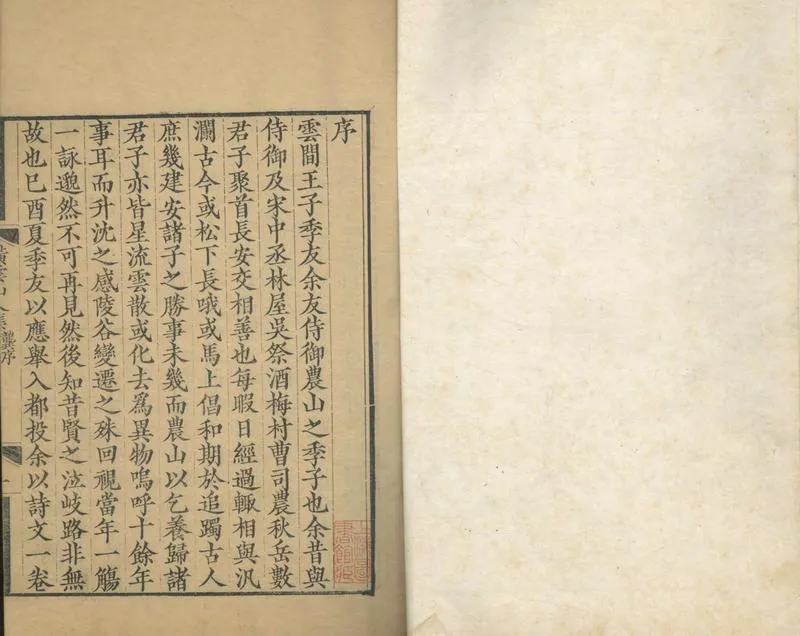 序
雲間王子季友余友侍御農山之季子也余昔與
侍御及宋中丞林屋吳祭酒梅村曹司農秋岳數
君子聚首長安交相善也每暇日經過輙相與汎
瀾古今或松下長哦或馬上倡和期於追躅古人
庶幾建安諸子之勝事未幾而農山以乞養歸諸
君子亦皆星流雲散或化去爲異物嗚呼十餘年
事耳而升沈之感陵谷變遷之殊回視當年一觴
一詠邈然不可再見然後知昔賢之泣岐路非無
故也已酉夏季友以應舉入都投余以詩文一卷
龔序
一